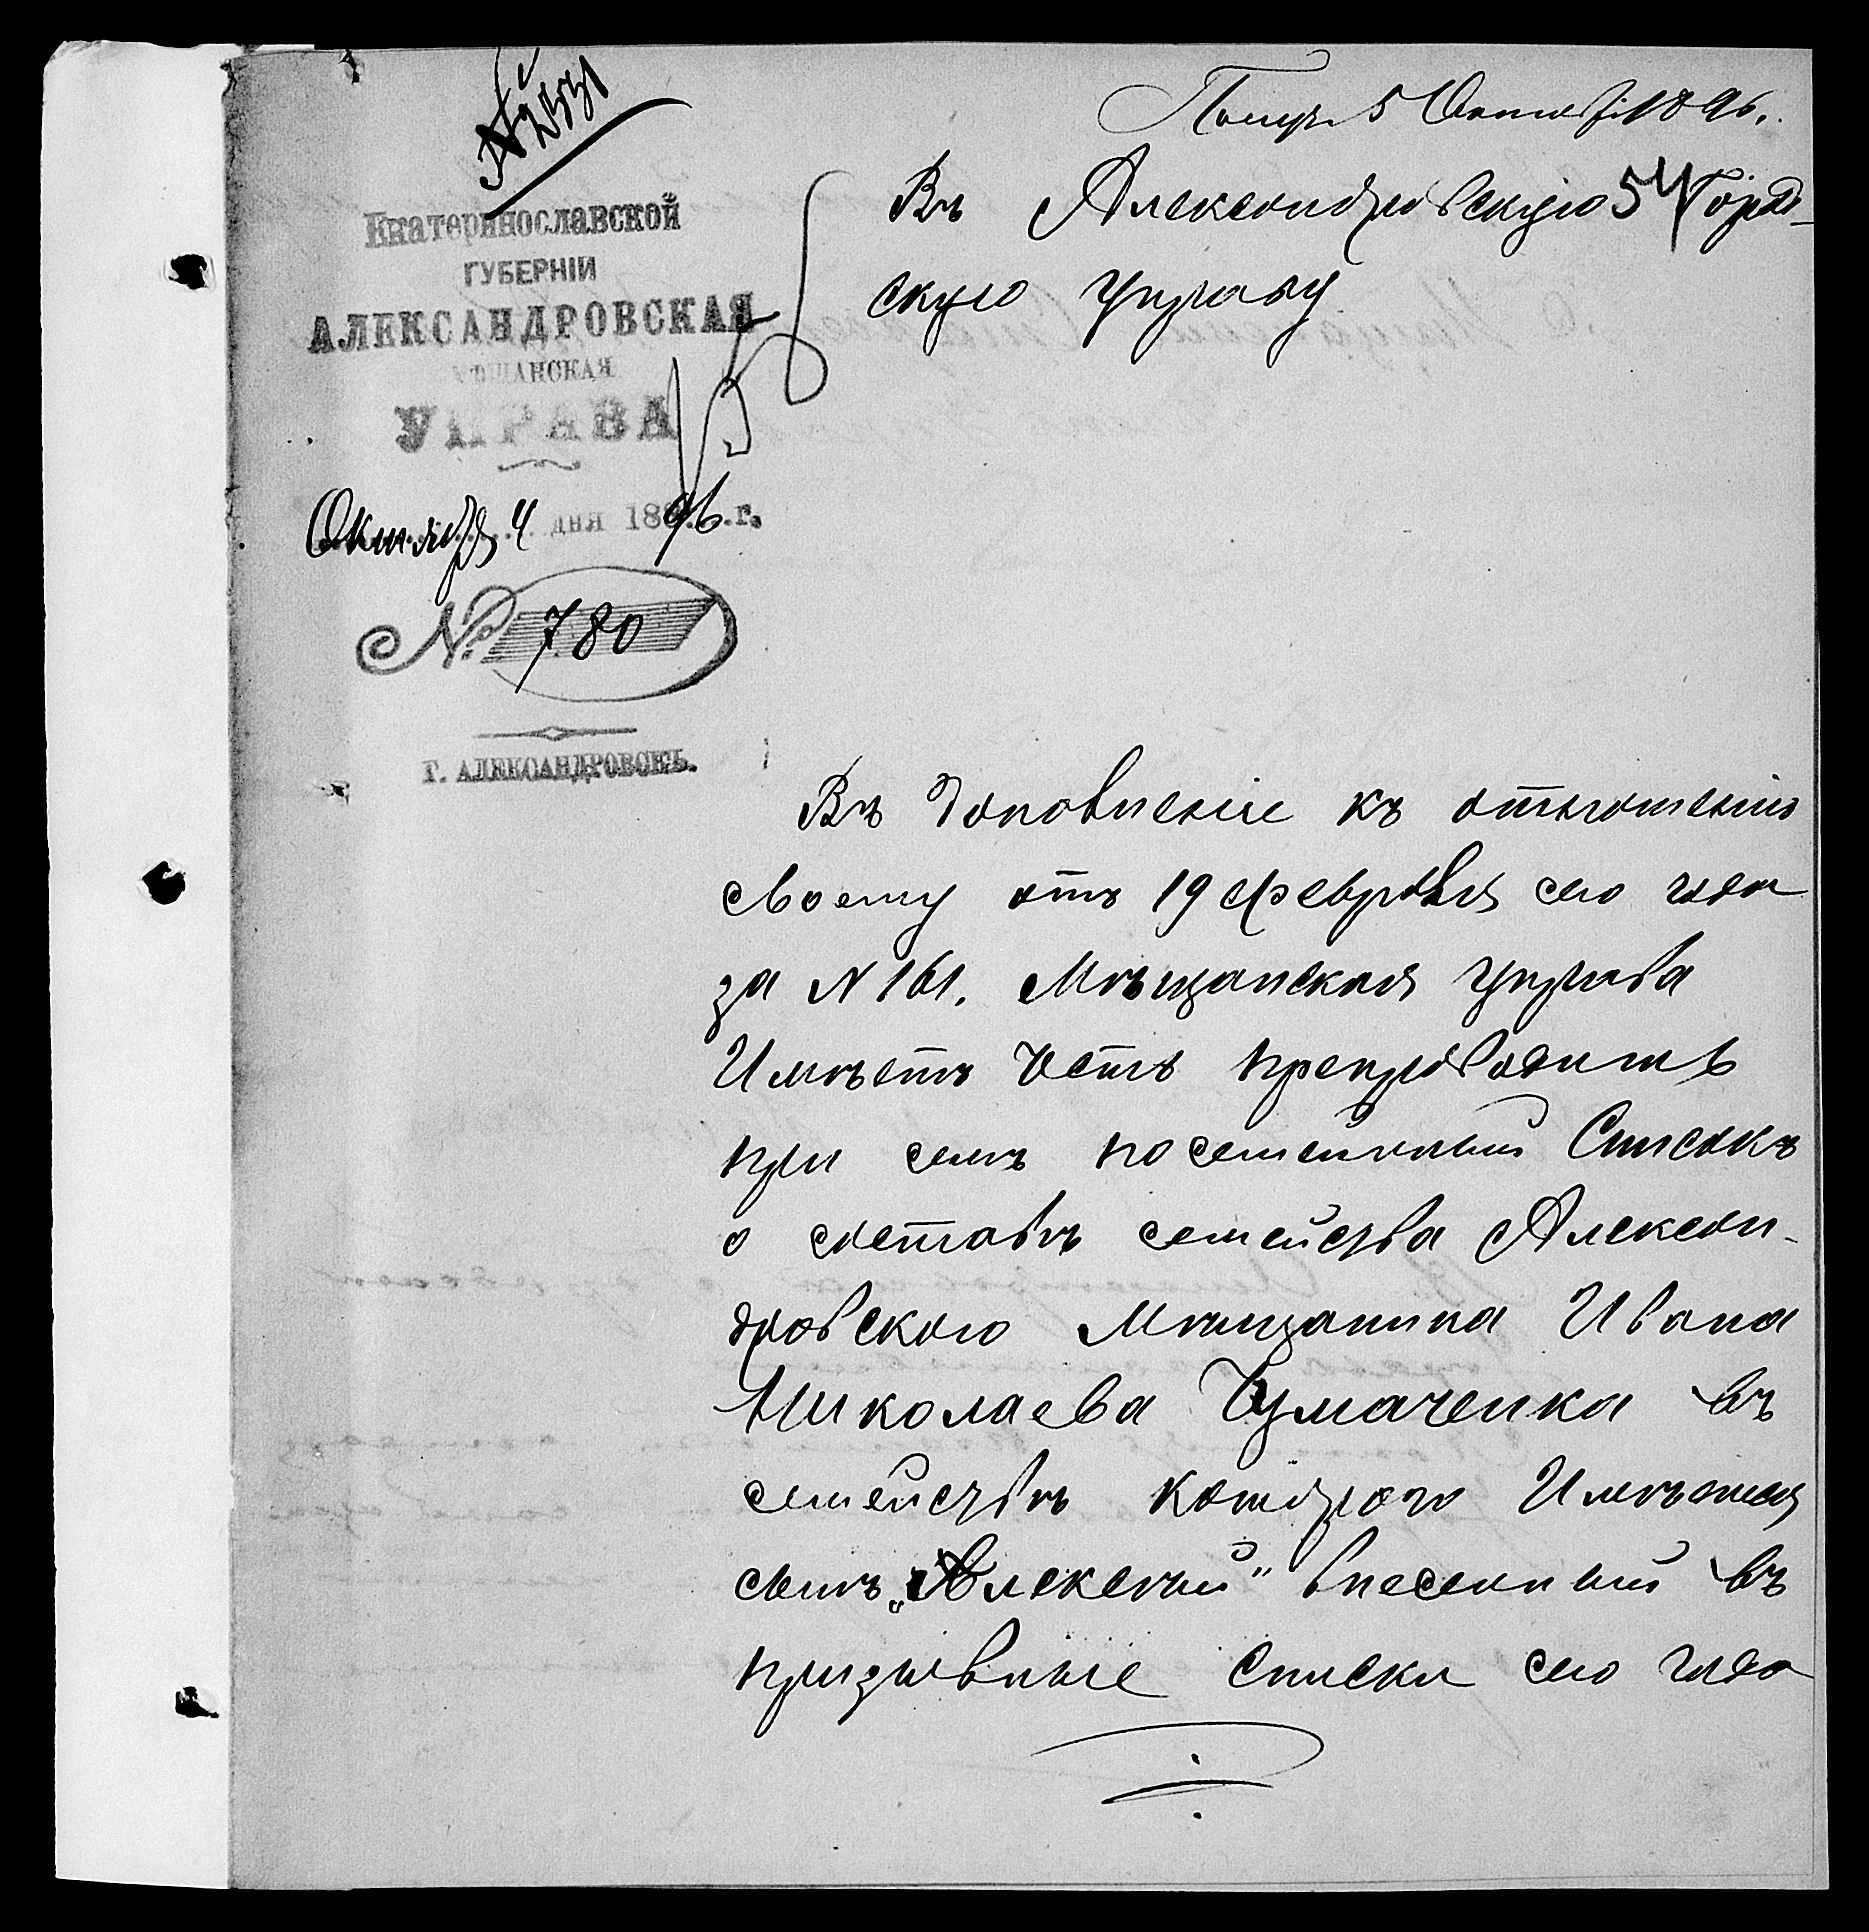 Получ 5 Октяб. 1896.
54
Екатеринославской
ГУБЕРНІИ
АЛЕКСАНДРОВСКАЯ
МѢЩАНСКАЯ
УПРАВА
Октября 4 дня 1896 г.
№ 780
г. АЛЕКСАНДРОВСКЪ.
Въ Александровскую Город-
скую Управу
Въ дополненіе къ отношенію
своему отъ 19 февраля сего года
за N 161. Мѣщанская Управа
Имѣетъ честь препроводить
при семъ посемейный Списокъ
о составѣ семейства Алексан-
дровского Мѣщанина Ивана
Николаева Чумаченка въ
семействѣ котораго Имѣется
сынъ „Алексѣй" внесенный въ
призывные списки сего года